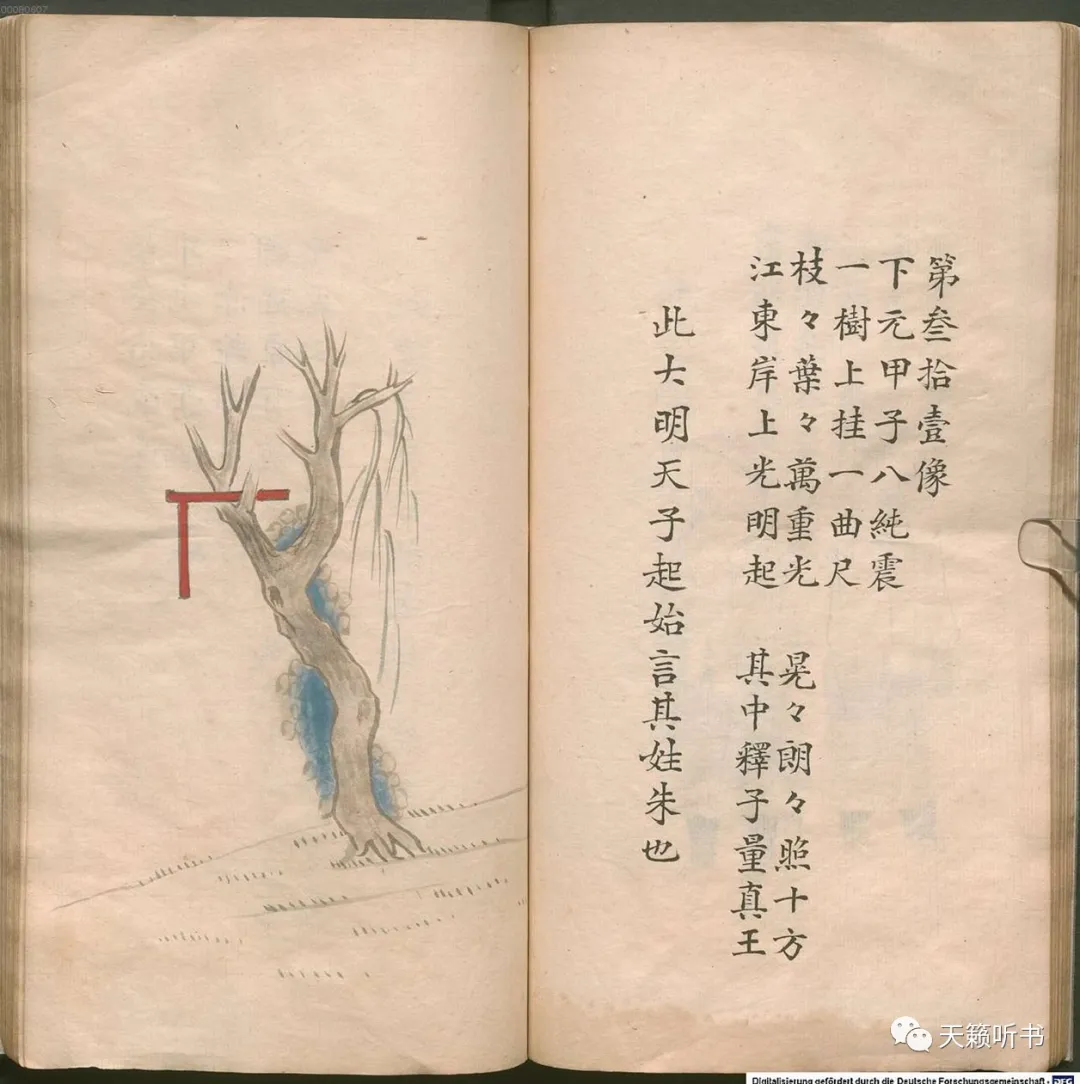 第叁拾壹像
下元甲子八純震
一樹上挂一曲尺
枝々葉々萬重光 晃々朗々照十方
江東岸上光明起 其中釋子量真王
此大明天子起始言其姓朱也
天籁听书
Digitalisierung gefördert durch die Deutsche Forschungsgemeinschaft - DFG